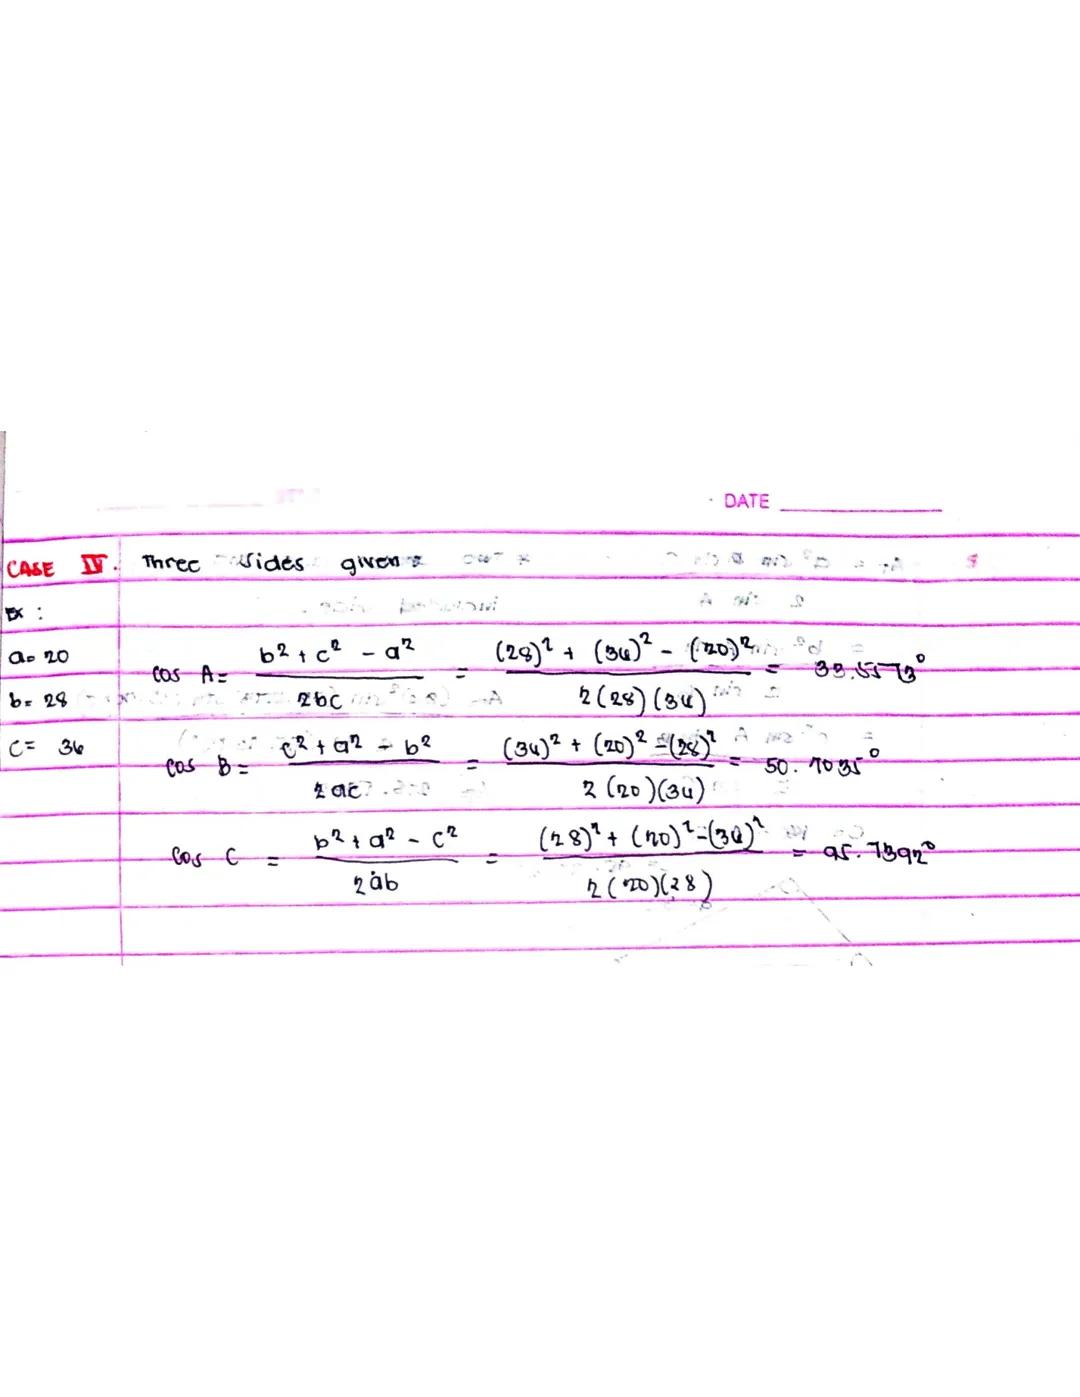 DATE
CASE IV. Three sides given
Ex :
a= 20
cos A = b² + c² - a² / 2bc = (28)² + (36)² - (20)² / 2(28)(36) = 33.5573°
b= 28
c= 36
cos B = c² + a² - b² / 2ac = (36)² + (20)² - (28)² / 2(20)(36) = 50.7035°
cos C = b² + a² - c² / 2ab = (28)² + (20)² - (36)² / 2(20)(28) = 95.7392°